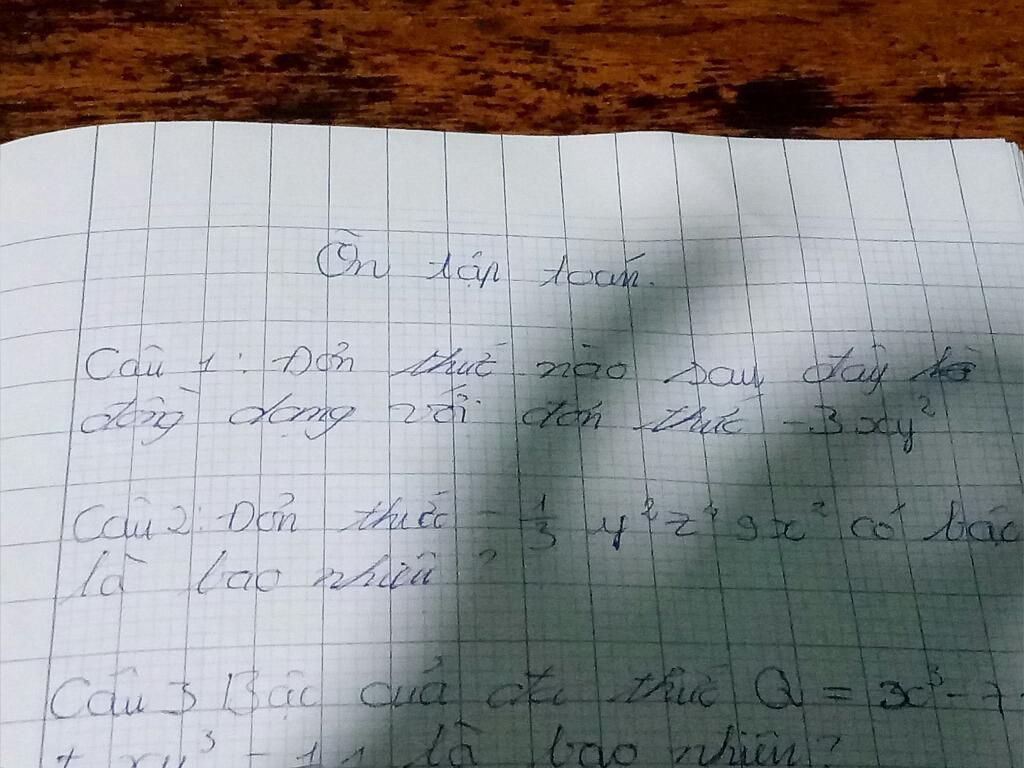 Ôn tập toán.
Câu 1: Đơn thức nào sau đây là
đồng dạng với đơn thức -3xy²
Câu 2: Đơn thức - 1/3 y²z⁴9x² có bậc
là bao nhiêu?
Câu 3 Bậc của đa thức Q = x³ - 7
+ xy³ - 11 là bao nhiêu?